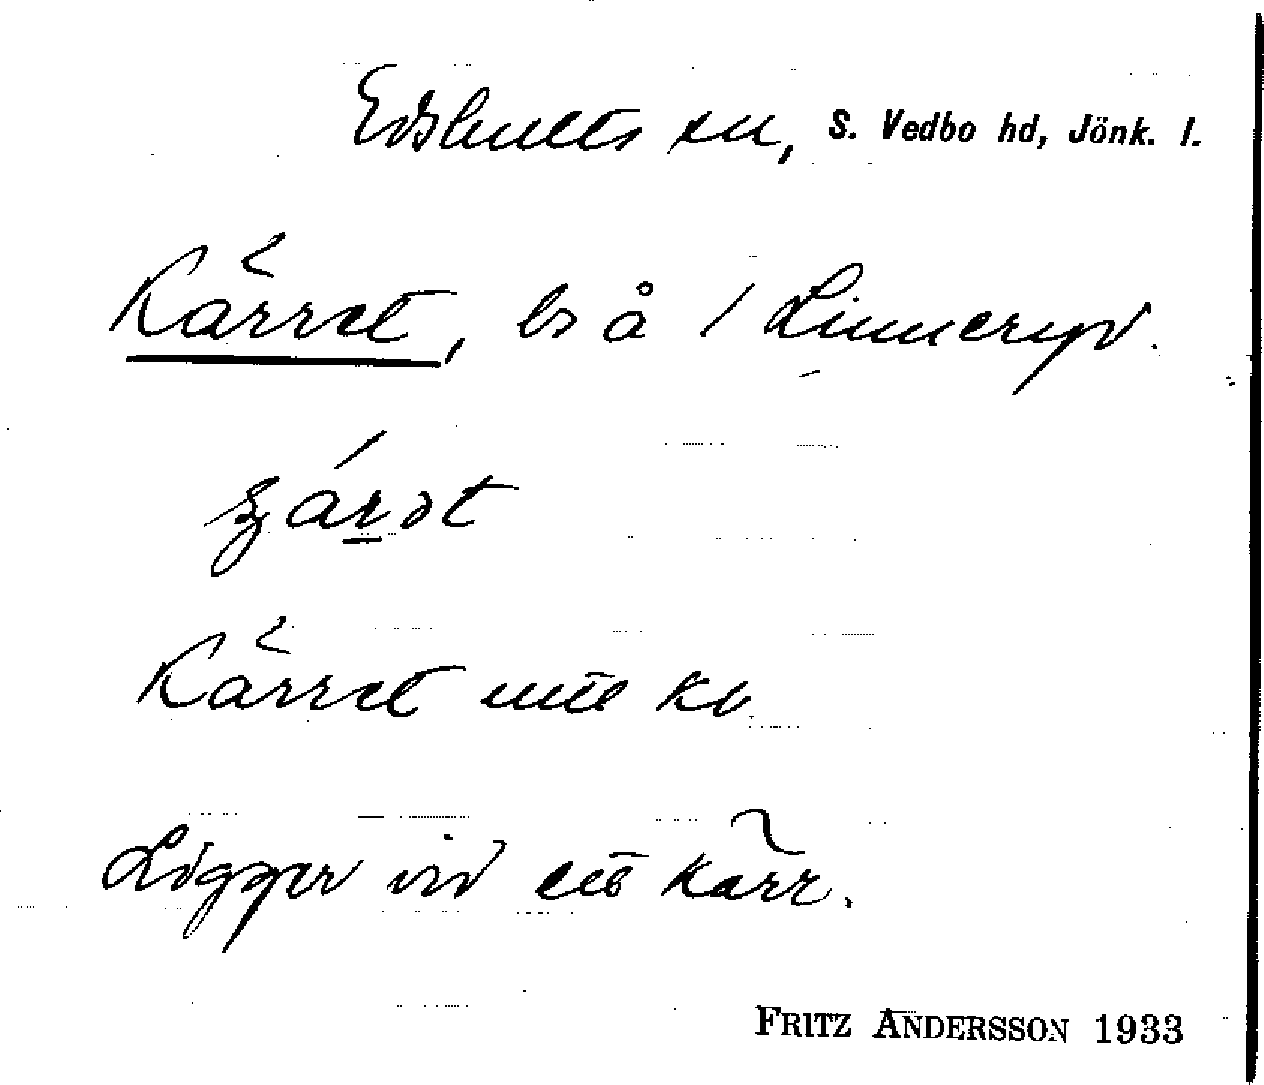 Edshults sn, S. Vedbo hd, Jönk. l.
Kärret, bs å / Linneryd.
Kärret
Ligger vid ett kärr.
FRITZ ANDERSSON 1933